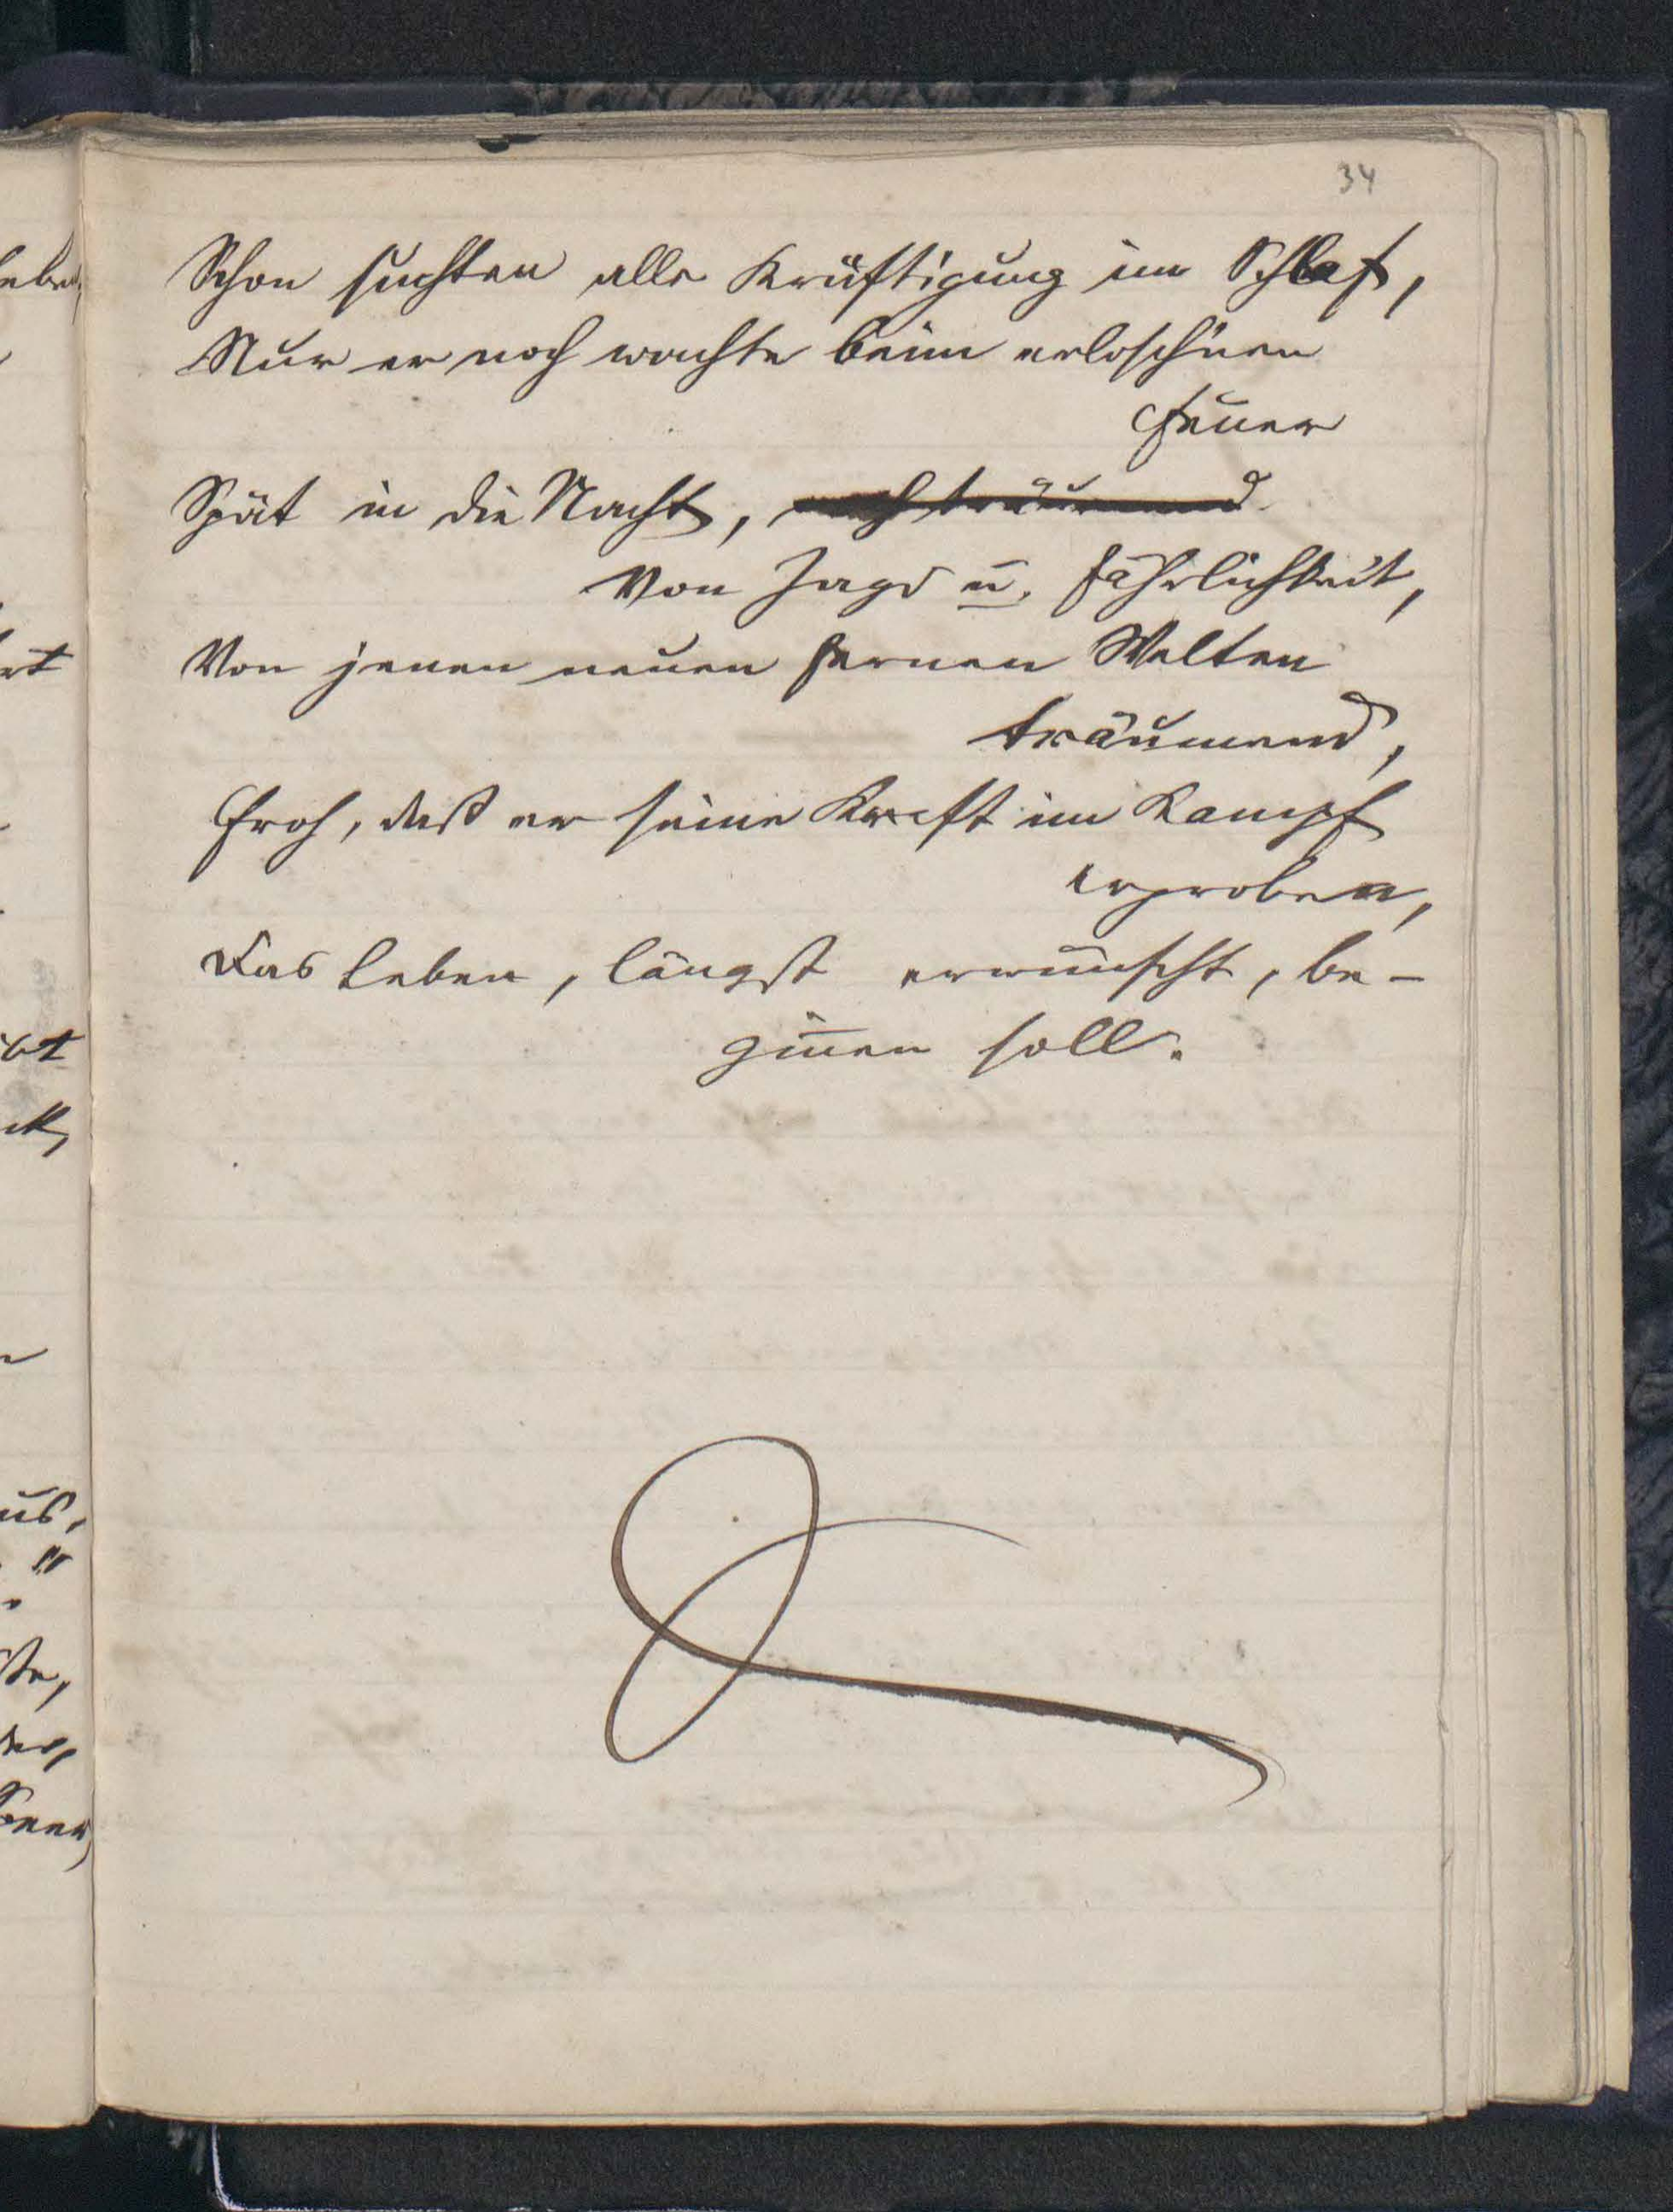 34
Schon suchten alle Kräftigung im Schlaf,
Nur er noch wachte beim erlosch'nen
Feuer
Spät in die Nacht, noch träumend
Von Jagd u. Fährlichkeit,
Von jenen neuen fernen Welten
träumend,
Froh, daß er seine Kraft im Kampf
erproben,
Das Leben, längst erwünscht, be-
gin̄en soll.